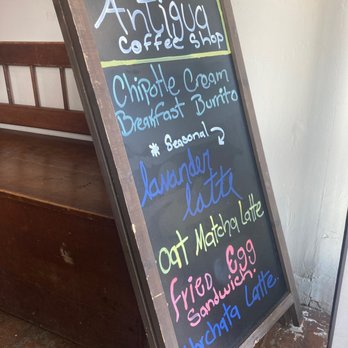 Antigua
Coffee Shop
Chipotle Cream
Breakfast Burrito
* Seasonal
lavander
latte
Oat Matcha Latte
Fried Egg
Sandwich
Horchata Latte